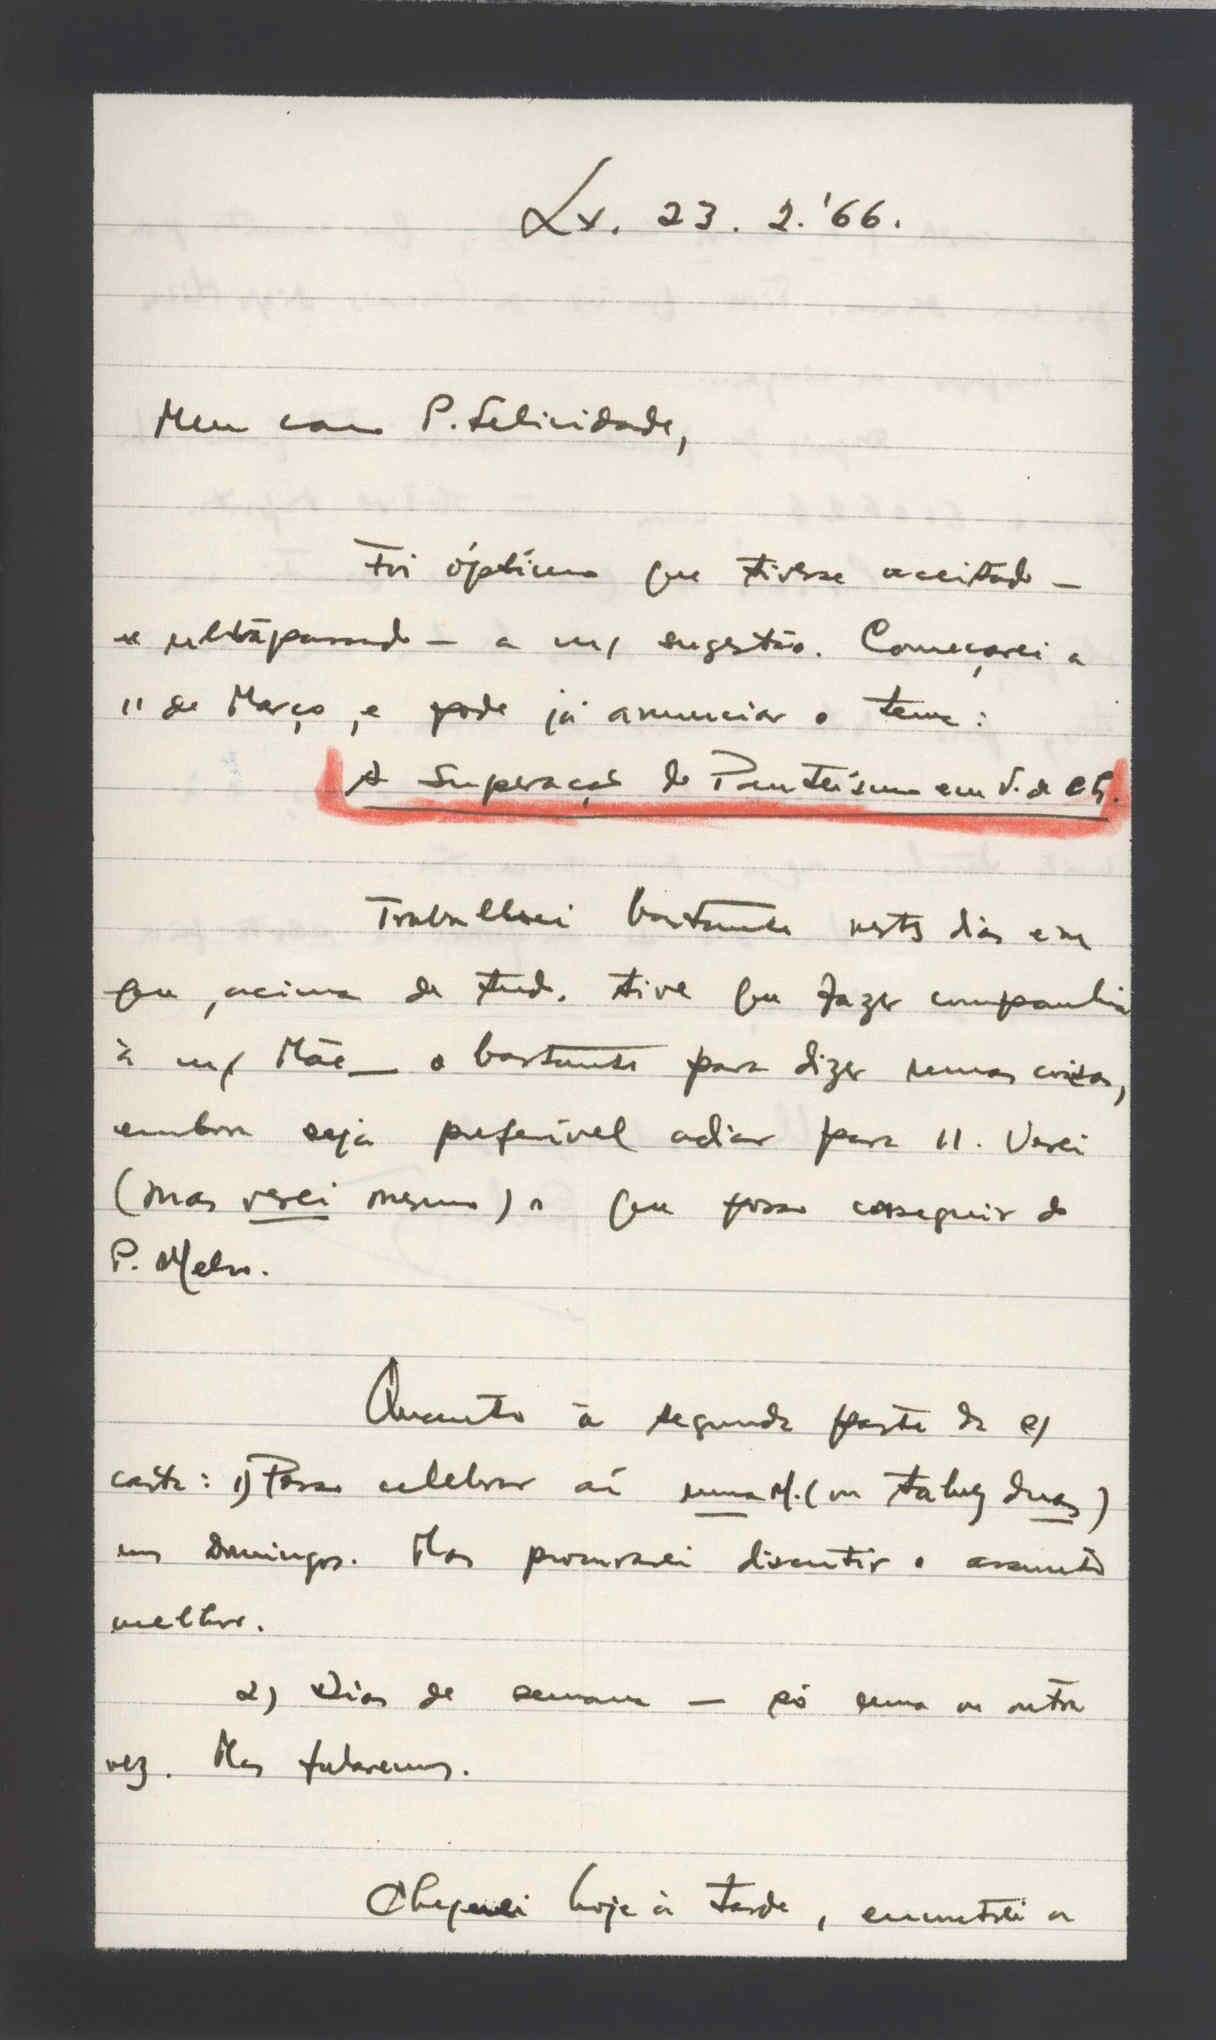 Lx. 23. 2. '66.
Meu caro P. Felicidade,
Foi óptimo que tivesse aceitado —
e ultrapassado — a m/ sugestão. Começarei a
11 de Março, e pode já anunciar o tema:
A Superação do Panteísmo em T. de Ch.
Trabalhei bastante nestes dias em
que, acima de tudo, tive que fazer companhia
à m/ Mãe — o bastante para dizer umas coisas,
embora seja preferível adiar para 11. Verei
(mas verei mesmo) o que posso conseguir do
P. Melo.
Quanto à segunda parte da s/
carta: 1) Posso celebrar aí uma M. (ou talvez duas)
aos Domingos. Mas procurarei discutir o assunto
melhor.
2) Dias de semana — só uma ou outra
vez. Mas falaremos.
Cheguei hoje à tarde, encontrei a